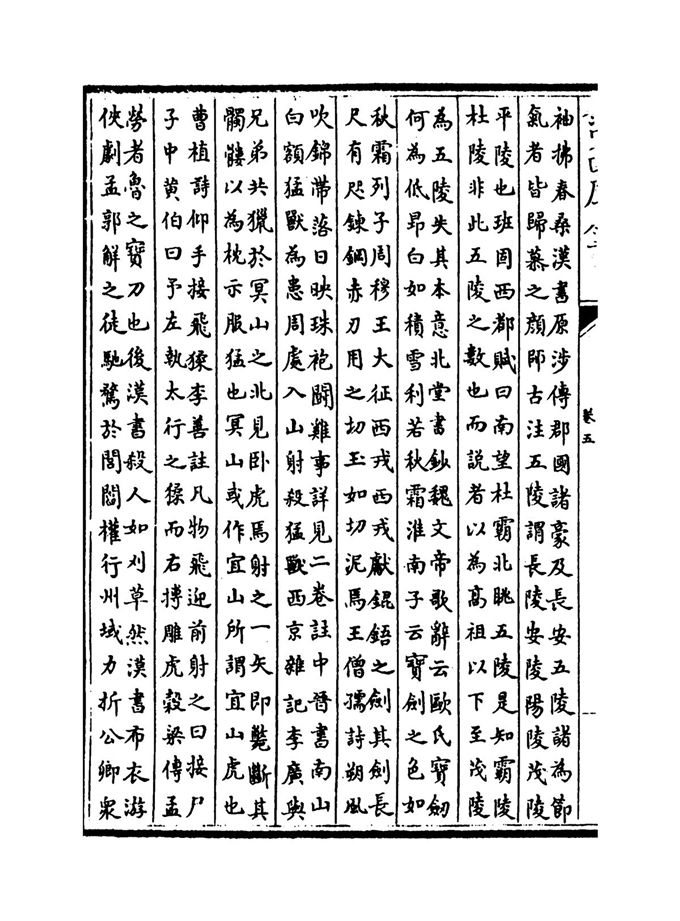 卷五
袖拂春桑漢書原涉傳郡國諸豪及長安五陵諸為節
氣者皆歸慕之顔師古注五陵謂長陵安陵陽陵茂陵
平陵也班固西都賦曰南望杜霸北眺五陵是知霸陵
杜陵非此五陵之數也而説者以為髙祖以下至茂陵
為五陵失其本意北堂書鈔魏文帝歌辭云歐氏寳劒
何為低昂白如積雪利若秋霜淮南子云寳劍之色如
秋霜列子周穆王大征西戎西戎獻錕鋙之劍其劍長
尺有咫鍊鋼赤刃用之切玉如切泥焉王僧孺詩朔風
吹錦帶落日映珠袍闘雞事詳見二卷註中晉書南山
白額猛獸為患周處入山射殺猛獸西京雜記李廣與
兄弟共獵於冥山之北見卧虎焉射之一矢即斃斷其
髑髏以為枕示服猛也冥山或作宜山所謂宜山虎也
曹植詩仰手接飛猱李善註凡物飛迎前射之曰接尸
子中黄伯曰予左執太行之猱而右搏雕虎榖梁傳孟
勞者魯之寶刀也後漢書殺人如刈草然漢書布衣游
俠劇孟郭解之徒馳騖於閭閻權行州域力折公卿衆